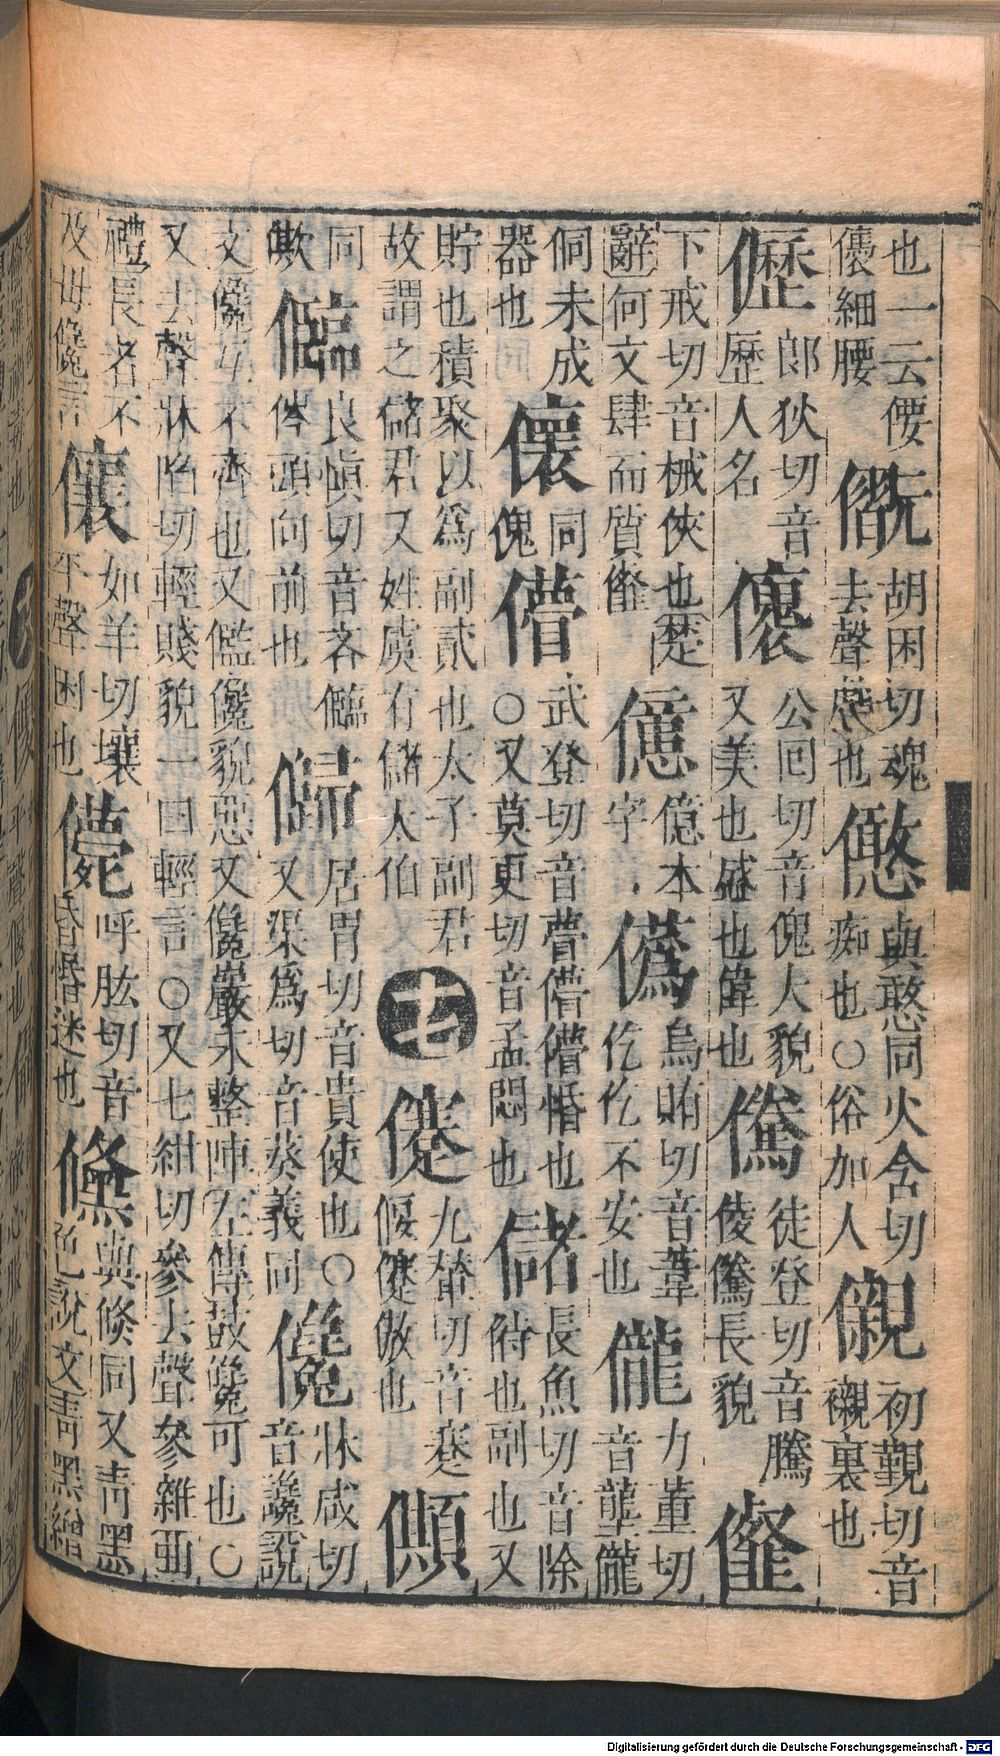 也一云偠
儇細腰
胡困切魂
去聲戲也
與憨同火含切
痴也○俗加人
儭
初覲切音
襯裏也
儮
郎狄切音
歷人名
公回切音傀大貌
又美也盛也偉也
儯
徒登切音騰
倰儯長貌
下戒切音械俠也楚
辭何文肆而質
億本
字
烏賄切音
仡仡不安也
儱
力董切
音壟儱
侗未成
器也
同
傀
儚
武登切音瞢儚儚惛也
○又莫更切音孟悶也
儲
長魚切音除
偫也副也又
貯也積聚以爲副貳也太子副君
故謂之儲君又姓虞有儲太伯
十七
九輦切音蹇
偃傲也
同
良愼切音吝
頭向前也
居胃切音貴使也○
又渠爲切音葵義同
儳
牀咸切
音讒說
文儳互不齊也又儖儳貌惡又儳巖未整陣左傳鼓儳可也○
又去聲牀陷切輕賤貌一曰輕言○又七紺切參去聲參雜亞
禮長者不
及毋儳言
儴
如羊切壤
平聲困也
呼肱切音
昏惛迷也
儵
與倏同又青黑
色說文青黑繒
Digitalisierung gefördert durch die Deutsche Forschungsgemeinschaft - DFG